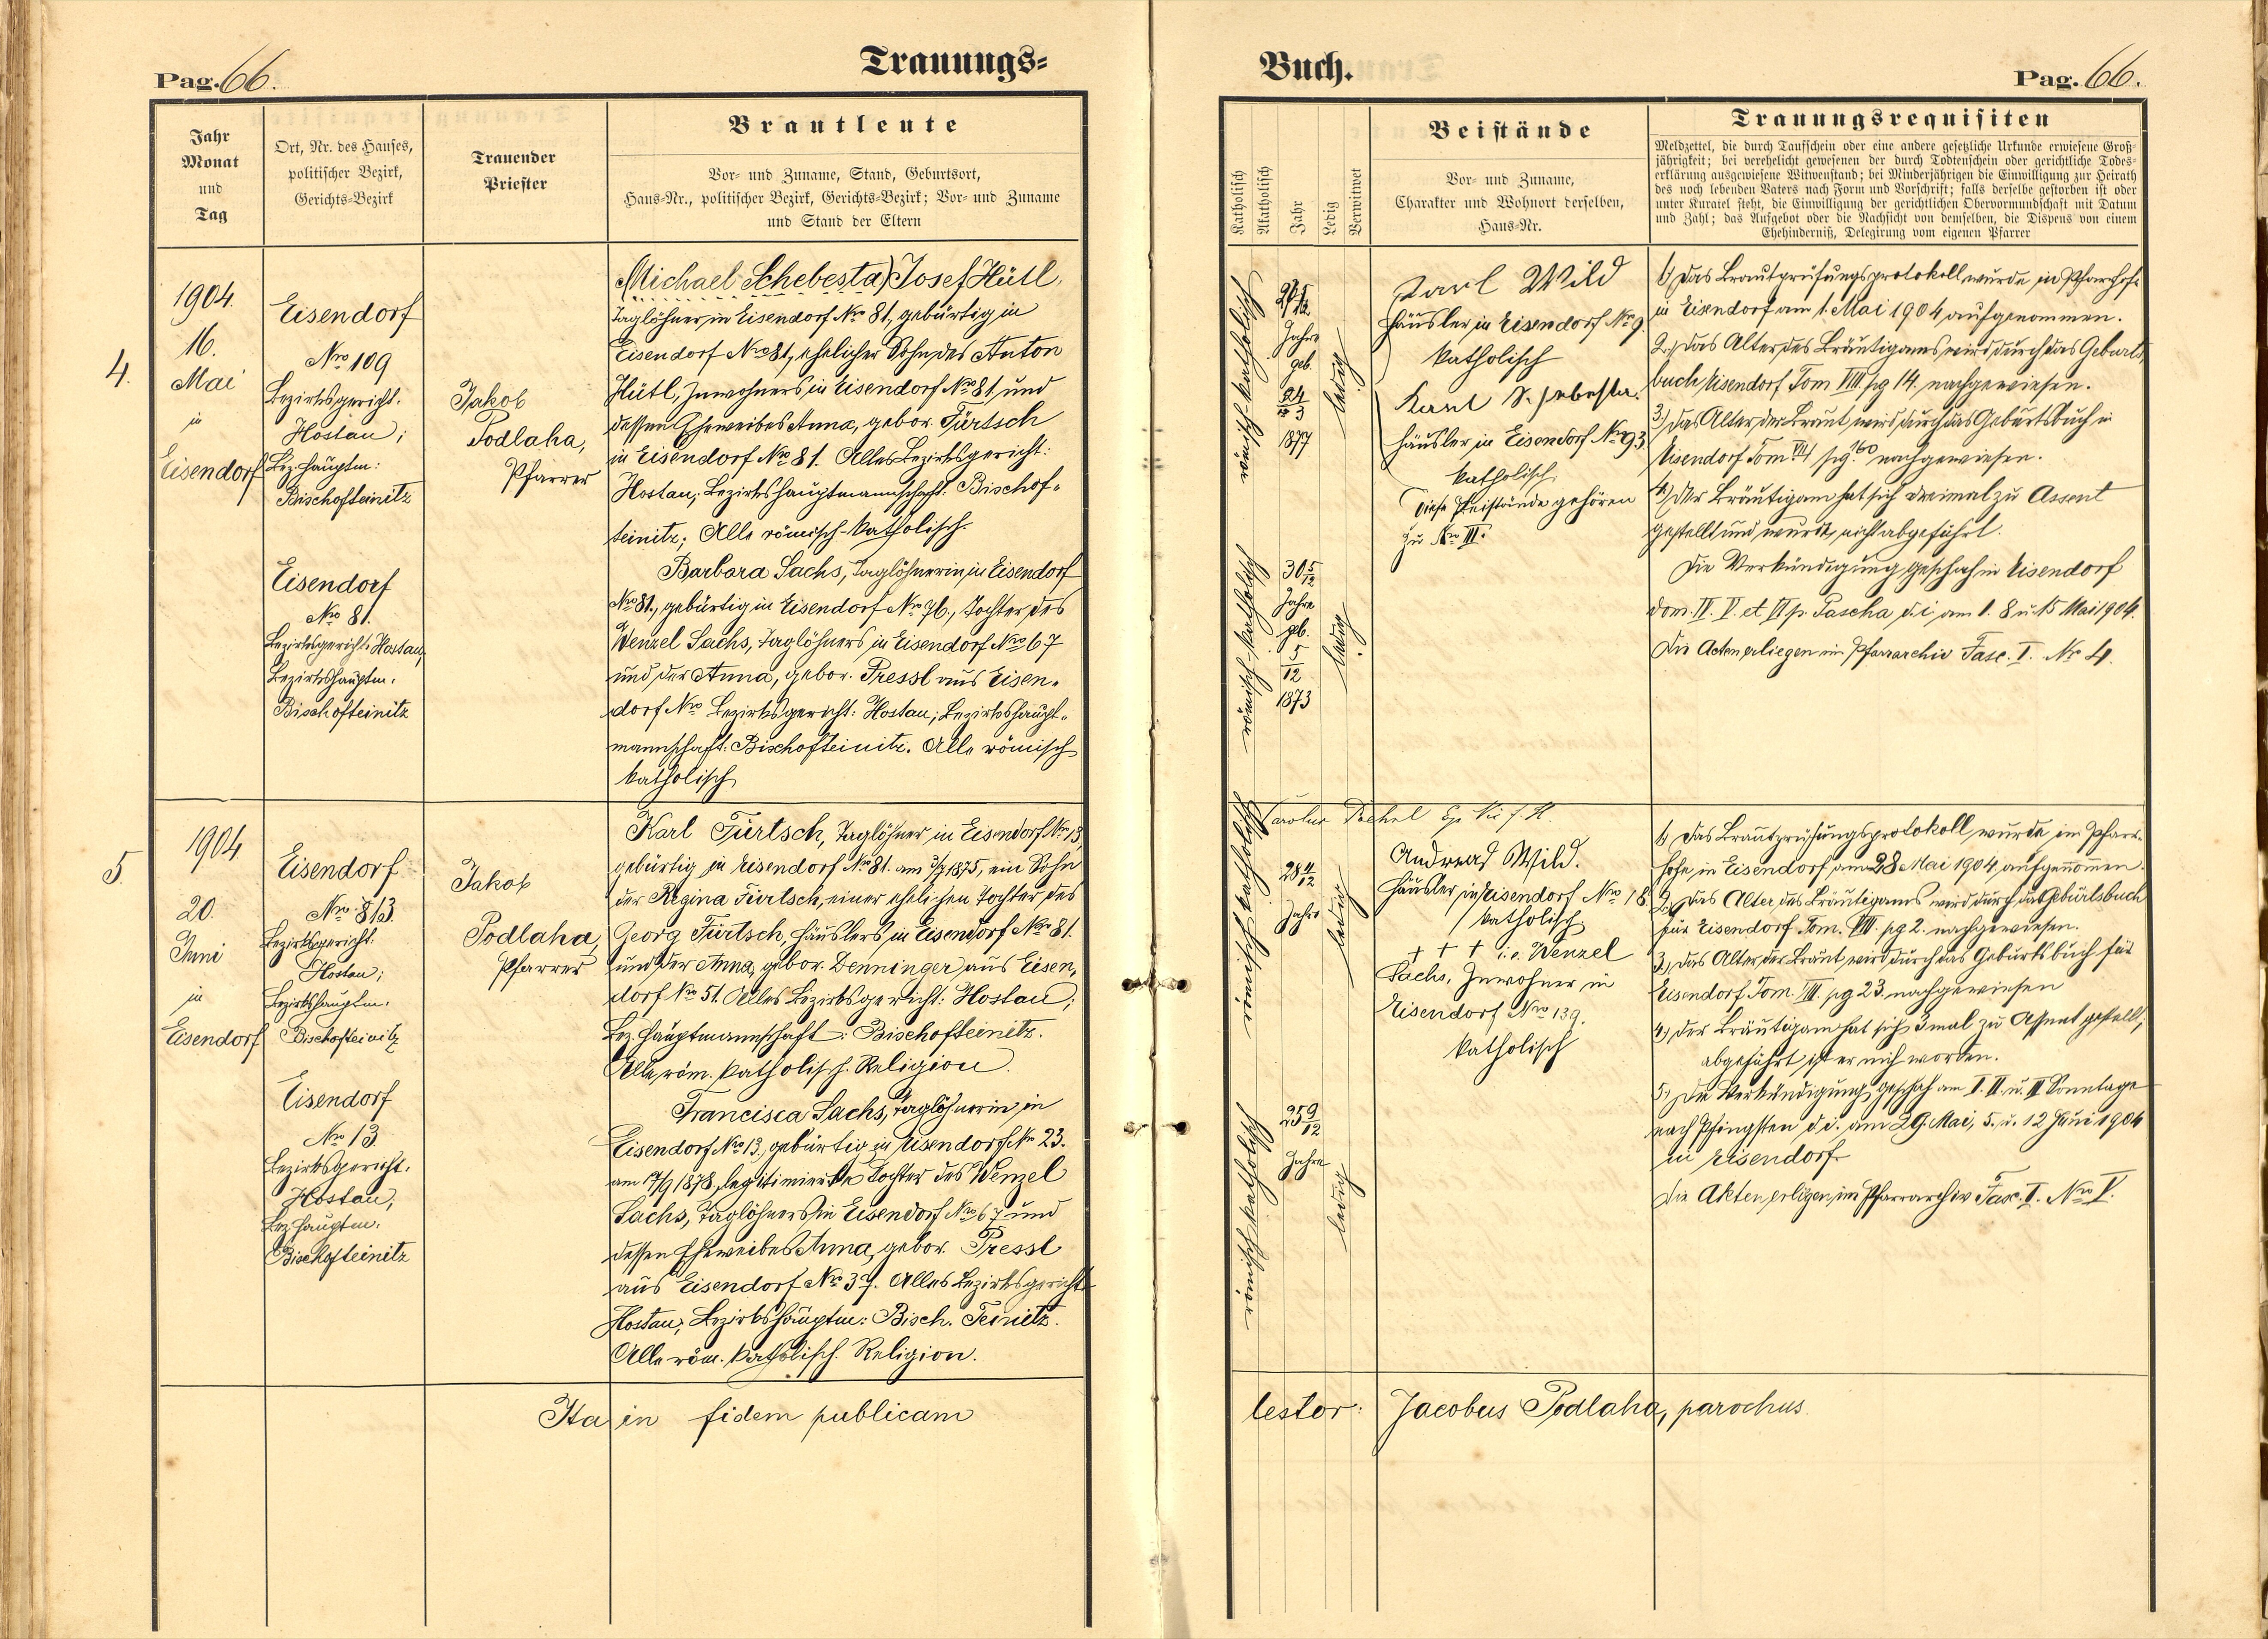 Pag. 66.
Trauungs=
Jahr
Monat
und
Tag
Ort, Nr. des Hauses,
politischer Bezirk,
Gerichts=Bezirk
Trauender
Priester
Brautleute
Vor= und Zuname, Stand, Geburtsort,
Haus=Nr., politischer Bezirk, Gerichts=Bezirk; Vor= und Zuname
und Stand der Eltern
4.
1904.
16.
Mai
in
Eisendorf
Eisendorf
Nro 109
Bezirksgericht:
Hostau;
Bez. Hauptm:
Bischofteinitz
Eisendorf
Nro 81.
Bezirksgericht: Hostau,
Bezirkshauptm:
Bischofteinitz
Jakob
Podlaha,
Pfarrer
(Michael Schebesta) Josef Hütl,
Taglöhner in Eisendorf Nro 81, gebürtig in
Eisendorf Nro 81, ehelicher Sohn des Anton
Hütl, Inwohners in Eisendorf Nro 81 und
dessen Eheweibes Anna, gebor. Fürtsch
in Eisendorf Nro 81. Alles Bezirksgericht:
Hostau; Bezirkshauptmannschaft: Bischof=
teinitz; Alle römisch-katholisch.
Barbara Sachs, Taglöhnerin in Eisendorf
Nro 81., gebürtig in Eisendorf Nro 76., Tochter des
Wenzel Sachs, Taglöhners in Eisendorf Nro 67
und der Anna, gebor. Pressl aus Eisen=
dorf Nro Bezirksgericht: Hostau; Bezirkshaupt=
mannschaft: Bischofteinitz. Alle römisch
katholisch
5
1904
20.
Juni
in
Eisendorf
Eisendorf
Nro 813
Bezirksgericht:
Hostau;
Bezirkshauptm:
Bischofteinitz
Eisendorf
Nro 13
Bezirksgericht:
Hostau;
Bez. Hauptm:
Bischofteinitz
Jakob
Podlaha,
Pfarrer
Karl Fürtsch, Taglöhner in Eisendorf Nro 13,
gebürtig in Eisendorf Nro 81. am 1875, ein Sohn
der Regina Fürtsch, einer ehelichen Tochter des
Georg Fürtsch, Häuslers in Eisendorf Nro 81.
und der Anna, gebor. Denninger aus Eisen=
dorf Nro 51. Alles Bezirksgericht: Hostau;
Bez. Hauptmannschaft: Bischofteinitz.
Alle röm. katholisch. Religion.
Francisca Sachs, Taglöhnerin in
Eisendorf Nro 13, gebürtig in Eisendorf Nro 23.
am 17/9 1878, legitimierte Tochter des Wenzel
Sachs, Taglöhners in Eisendorf Nro 67 und
dessen Eheweibes Anna, gebor. Pressl
aus Eisendorf Nro 37. Alles Bezirksgericht:
Hostau; Bezirkshauptm: Bisch. Teinitz.
Alle röm. katholisch. Religion.
Ita in fidem publicam
Buch.
Pag. 66.
Katholisch
Akatholisch
Jahr
Ledig
Verwitwet
Beistände
Vor= und Zuname,
Charakter und Wohnort derselben,
Haus=Nr.
Trauungsrequisiten
Meldzettel, die durch Taufschein oder eine andere gesetzliche Urkunde erwiesene Groß=
jährigkeit; bei verehelicht gewesenen der durch Todtenschein oder gerichtliche Todes=
erklärung ausgewiesene Witwenstand; bei Minderjährigen die Einwilligung zur Heirath
des noch lebenden Vaters nach Form und Vorschrift; falls derselbe gestorben ist oder
unter Kuratel steht, die Einwilligung der gerichtlichen Obervormundschaft mit Datum
und Zahl; das Aufgebot oder die Nachsicht von demselben, die Dispens von einem
Ehehinderniß, Delegirung vom eigenen Pfarrer
römisch-katholisch
Jahre
geb.
24
3
1877
ledig
römisch-katholisch
30 5/12
Jahre
geb.
5
12
1873
ledig
Karl Wild
Häusler in Eisendorf Nro 9.
katholisch
Karl Schebesta.
Häusler in Eisendorf Nro 93
katholisch.
Diese Beistände gehören
zu Nro III.
1) Das Brautprüfungsprotokoll wurde im Pfarrhofe
in Eisendorf am 1. Mai 1904 aufgenommen.
2.) Das Alter des Bräutigams wird durch das Geburts=
buch Eisendorf Tom VIII pg 14. nachgewiesen.
3.) Das Alter der Braut wird durch das Geburtsbuch in
Eisendorf Tom VII pg 160 nachgewiesen.
4.) Der Bräutigam hat sich dreimal zu Assent
gestellt und wurde nicht abgeführt.
Die Verkündigung geschah in Eisendorf
dom. IV. V. et VI p. Pascha d. i. am 1. 8 u. 15 Mai 1904.
Die Acten erliegen im Pfarrarchiv Fasc. I. Nr 4.
römisch katholisch
28 11/12
Jahre
ledig
römisch katholisch
25 9/12
Jahre
ledig
Andreas Wild.
Häusler in Eisendorf Nro 18
katholisch
+ + + i. e. Wenzel
Sachs, Inwohner in
Eisendorf Nro 139.
katholisch
1) Das Brautprüfungsprotokoll wurde im Pfarr=
hofe in Eisendorf am 28 Mai 1904 aufgenommen.
2.) Das Alter des Bräutigams wird durch das Geburtsbuch
für Eisendorf Tom. VIII. pg 2. nachgewiesen.
3.) Das Alter der Braut wird durch das Geburtsbuch für
Eisendorf Tom. VIII. pg 23. nachgewiesen
4.) Der Bräutigam hat sich 3mal zu Assent gestellt;
abgeführt ist er nich worden.
5.) Die Verkündigung geschah am I. II. u. III Sonntage
nach Pfingsten d. i. am 29. Mai, 5. u. 12 Juni 1904
in Eisendorf
Die Akten erligen im Pfarrarchiv Fasc. I. Nro V.
testor: Jacobus Podlaha, parochus.